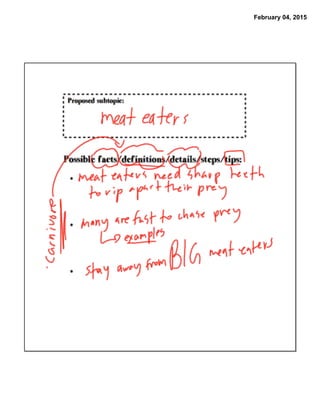 February 04, 2015
Proposed subtopic:
meat eaters
Possible facts/definitions/details/steps/tips:
• meat eaters need sharp teeth
to rip apart their prey
• many are fast to chase prey
examples
• stay away from BIG meat eaters
• Carnivore